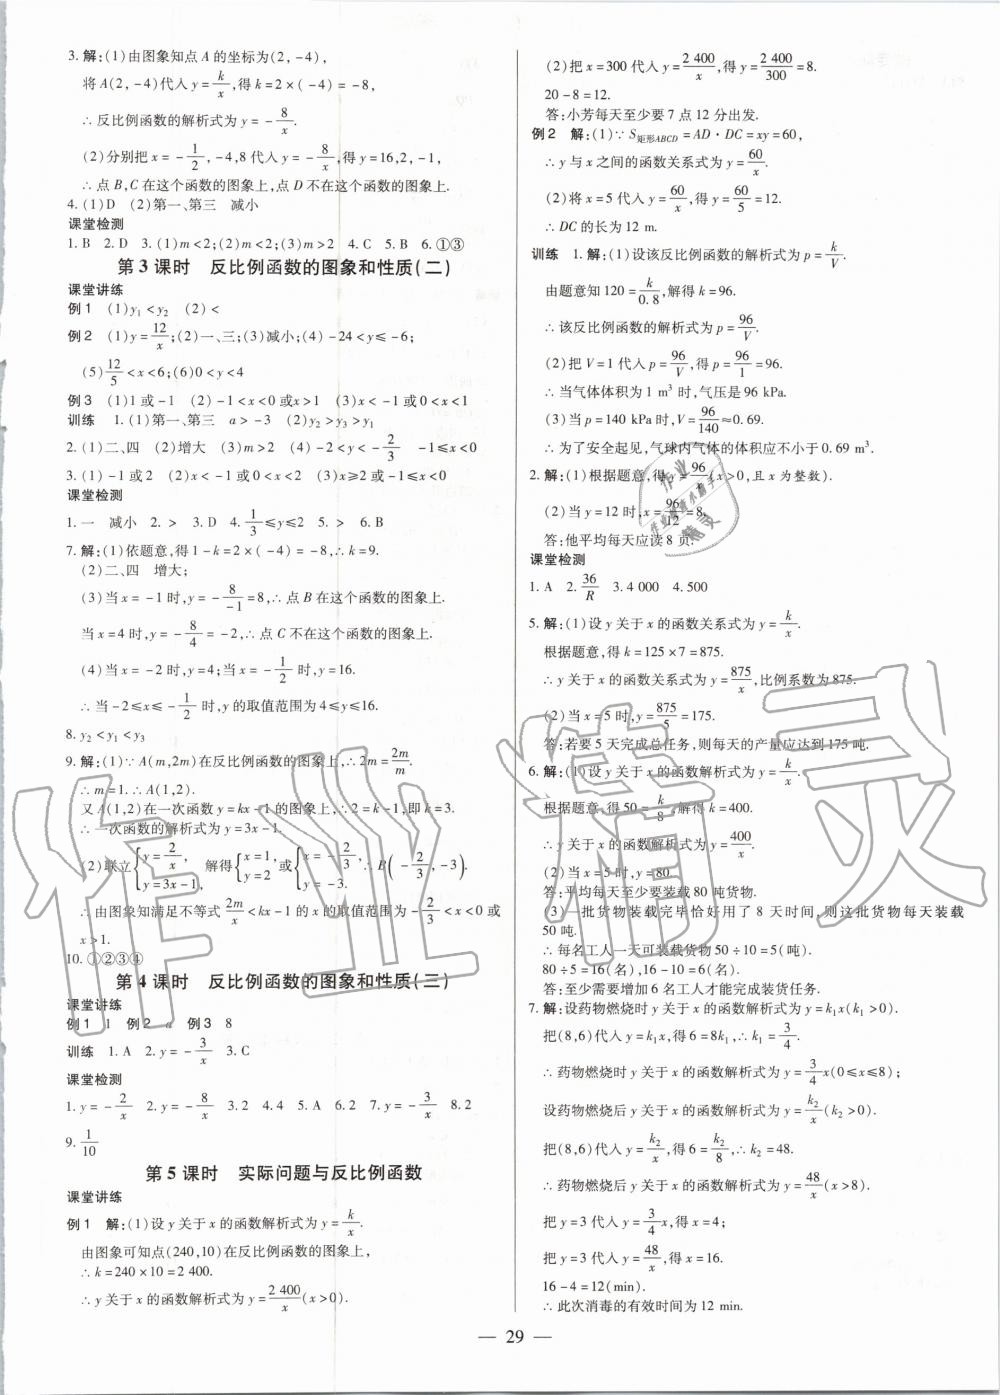 3. 解:(1)由图象知点 A 的坐标为(2,-4),
将 A(2,-4)代入 y=k/x,得 k=2×(-4)=-8,
∴反比例函数的解析式为 y=-8/x.
(2)分别把 x=-1/2,-4,8 代入 y=-8/x,得 y=16,2,-1,
∴点 B,C 在这个函数的图象上,点 D 不在这个函数的图象上.
4. (1)D (2)第一、第三 减小
课堂检测
1. B 2. D 3. (1)m<2;(2)m<2;(3)m>2 4. C 5. B 6. ①③
第 3 课时 反比例函数的图象和性质(二)
课堂讲练
例 1 (1)y₁<y₂ (2)<
例 2 (1)y=12/x;(2)一、三;(3)减小;(4)-24<y≤-6;
(5)12/5<x<6;(6)0<y<4
例 3 (1)1 或-1 (2)-1<x<0 或 x>1 (3)x<-1 或 0<x<1
训练 1. (1)第一、第三 a>-3 (2)y₂>y₃>y₁
2. (1)二、四 (2)增大 (3)m>2 (4)-2<y<-2/3 -1≤x<0
3. (1)-1 或 2 (2)x<-1 或 0<x<2 (3)x≥2 或-1≤x<0
课堂检测
1. 一 减小 2. > 3. D 4. 1/3≤y≤2 5. > 6. B
7. 解:(1)依题意,得 1-k=2×(-4)=-8,∴k=9.
(2)二、四 增大;
(3)当 x=-1 时,y=-8/-1=8,∴点 B 在这个函数的图象上.
当 x=4 时,y=-8/4=-2,∴点 C 不在这个函数的图象上.
(4)当 x=-2 时,y=4;当 x=-1/2 时,y=16.
∴当-2≤x≤-1/2 时,y 的取值范围为 4≤y≤16.
8. y₂<y₁<y₃
9. 解:(1)∵A(m,2m)在反比例函数的图象上,∴2m=2m/m.
∴m=1.∴A(1,2).
又 A(1,2)在一次函数 y=kx-1 的图象上,∴2=k-1,即 k=3.
∴一次函数的解析式为 y=3x-1.
(2)联立{y=2/x, y=3x-1, 解得{x=1, y=2 或{x=-2/3, y=-3. ∴B(-2/3,-3).
∴由图象知满足不等式 2m/x<kx-1 的 x 的取值范围为-2/3<x<0 或
x>1.
10. ①②③④
第 4 课时 反比例函数的图象和性质(三)
课堂讲练
例 1 1 例 2 a 例 3 8
训练 1. A 2. y=-3/x 3. C
课堂检测
1. y=-2/x 2. y=-8/x 3. 2 4. 4 5. A 6. 2 7. y=-3/x 8. 2
9. 1/10
第 5 课时 实际问题与反比例函数
课堂讲练
例 1 解:(1)设 y 关于 x 的函数解析式为 y=k/x.
由图象可知点(240,10)在反比例函数的图象上,
∴k=240×10=2 400.
∴y 关于 x 的函数解析式为 y=2 400/x(x>0).
(2)把 x=300 代入 y=2 400/x,得 y=2 400/300=8.
20-8=12.
答:小芳每天至少要 7 点 12 分出发.
例 2 解:(1)∵S矩形ABCD=AD·DC=xy=60,
∴y 与 x 之间的函数关系式为 y=60/x.
(2)将 x=5 代入 y=60/x,得 y=60/5=12.
∴DC 的长为 12 m.
训练 1. 解:(1)设该反比例函数的解析式为 p=k/V.
由题意知 120=k/0.8,解得 k=96.
∴该反比例函数的解析式为 p=96/V.
(2)把 V=1 代入 p=96/V,得 p=96/1=96.
∴当气体体积为 1 m³ 时,气压是 96 kPa.
(3)当 p=140 kPa 时,V=96/140≈0.69.
∴为了安全起见,气球内气体的体积应不小于 0.69 m³.
2. 解:(1)根据题意,得 y=96/x(x>0,且 x 为整数).
(2)当 y=12 时,x=96/12=8.
答:他平均每天应读 8 页.
课堂检测
1. A 2. 36/R 3. 4 000 4. 500
5. 解:(1)设 y 关于 x 的函数关系式为 y=k/x.
根据题意,得 k=125×7=875.
∴y 关于 x 的函数关系式为 y=875/x,比例系数为 875.
(2)当 x=5 时,y=875/5=175.
答:若要 5 天完成总任务,则每天的产量应达到 175 吨.
6. 解:(1)设 y 关于 x 的函数解析式为 y=k/x.
根据题意,得 50=k/8,解得 k=400.
∴y 关于 x 的函数解析式为 y=400/x.
(2)当 x=5 时,y=80.
答:平均每天至少要装载 80 吨货物.
(3)一批货物装载完毕恰好用了 8 天时间,则这批货物每天装载
50 吨.
∴每名工人一天可装载货物 50÷10=5(吨).
80÷5=16(名),16-10=6(名).
答:至少需要增加 6 名工人才能完成装货任务.
7. 解:设药物燃烧时 y 关于 x 的函数解析式为 y=k₁x(k₁>0).
把(8,6)代入 y=k₁x,得 6=8k₁,∴k₁=3/4.
∴药物燃烧时 y 关于 x 的函数解析式为 y=3/4x(0≤x≤8);
设药物燃烧后 y 关于 x 的函数解析式为 y=k₂/x(k₂>0).
把(8,6)代入 y=k₂/x,得 6=k₂/8,∴k₂=48.
∴药物燃烧后 y 关于 x 的函数解析式为 y=48/x(x>8).
把 y=3 代入 y=3/4x,得 x=4;
把 y=3 代入 y=48/x,得 x=16.
16-4=12(min).
∴此次消毒的有效时间为 12 min.
— 29 —
作业精灵